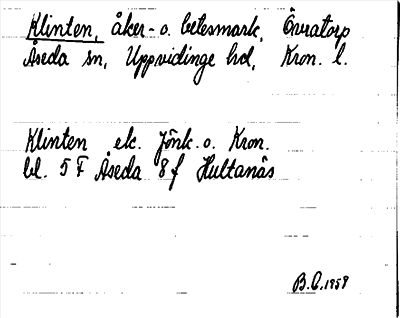 Klinten, åker- o. betesmark, Övratorp
Åseda sn, Uppvidinge hd, Kron. l.
Klinten ek. Jönk. o. Kron.
bl. 5 F Åseda 8 f Hultanäs
B.C. 1958